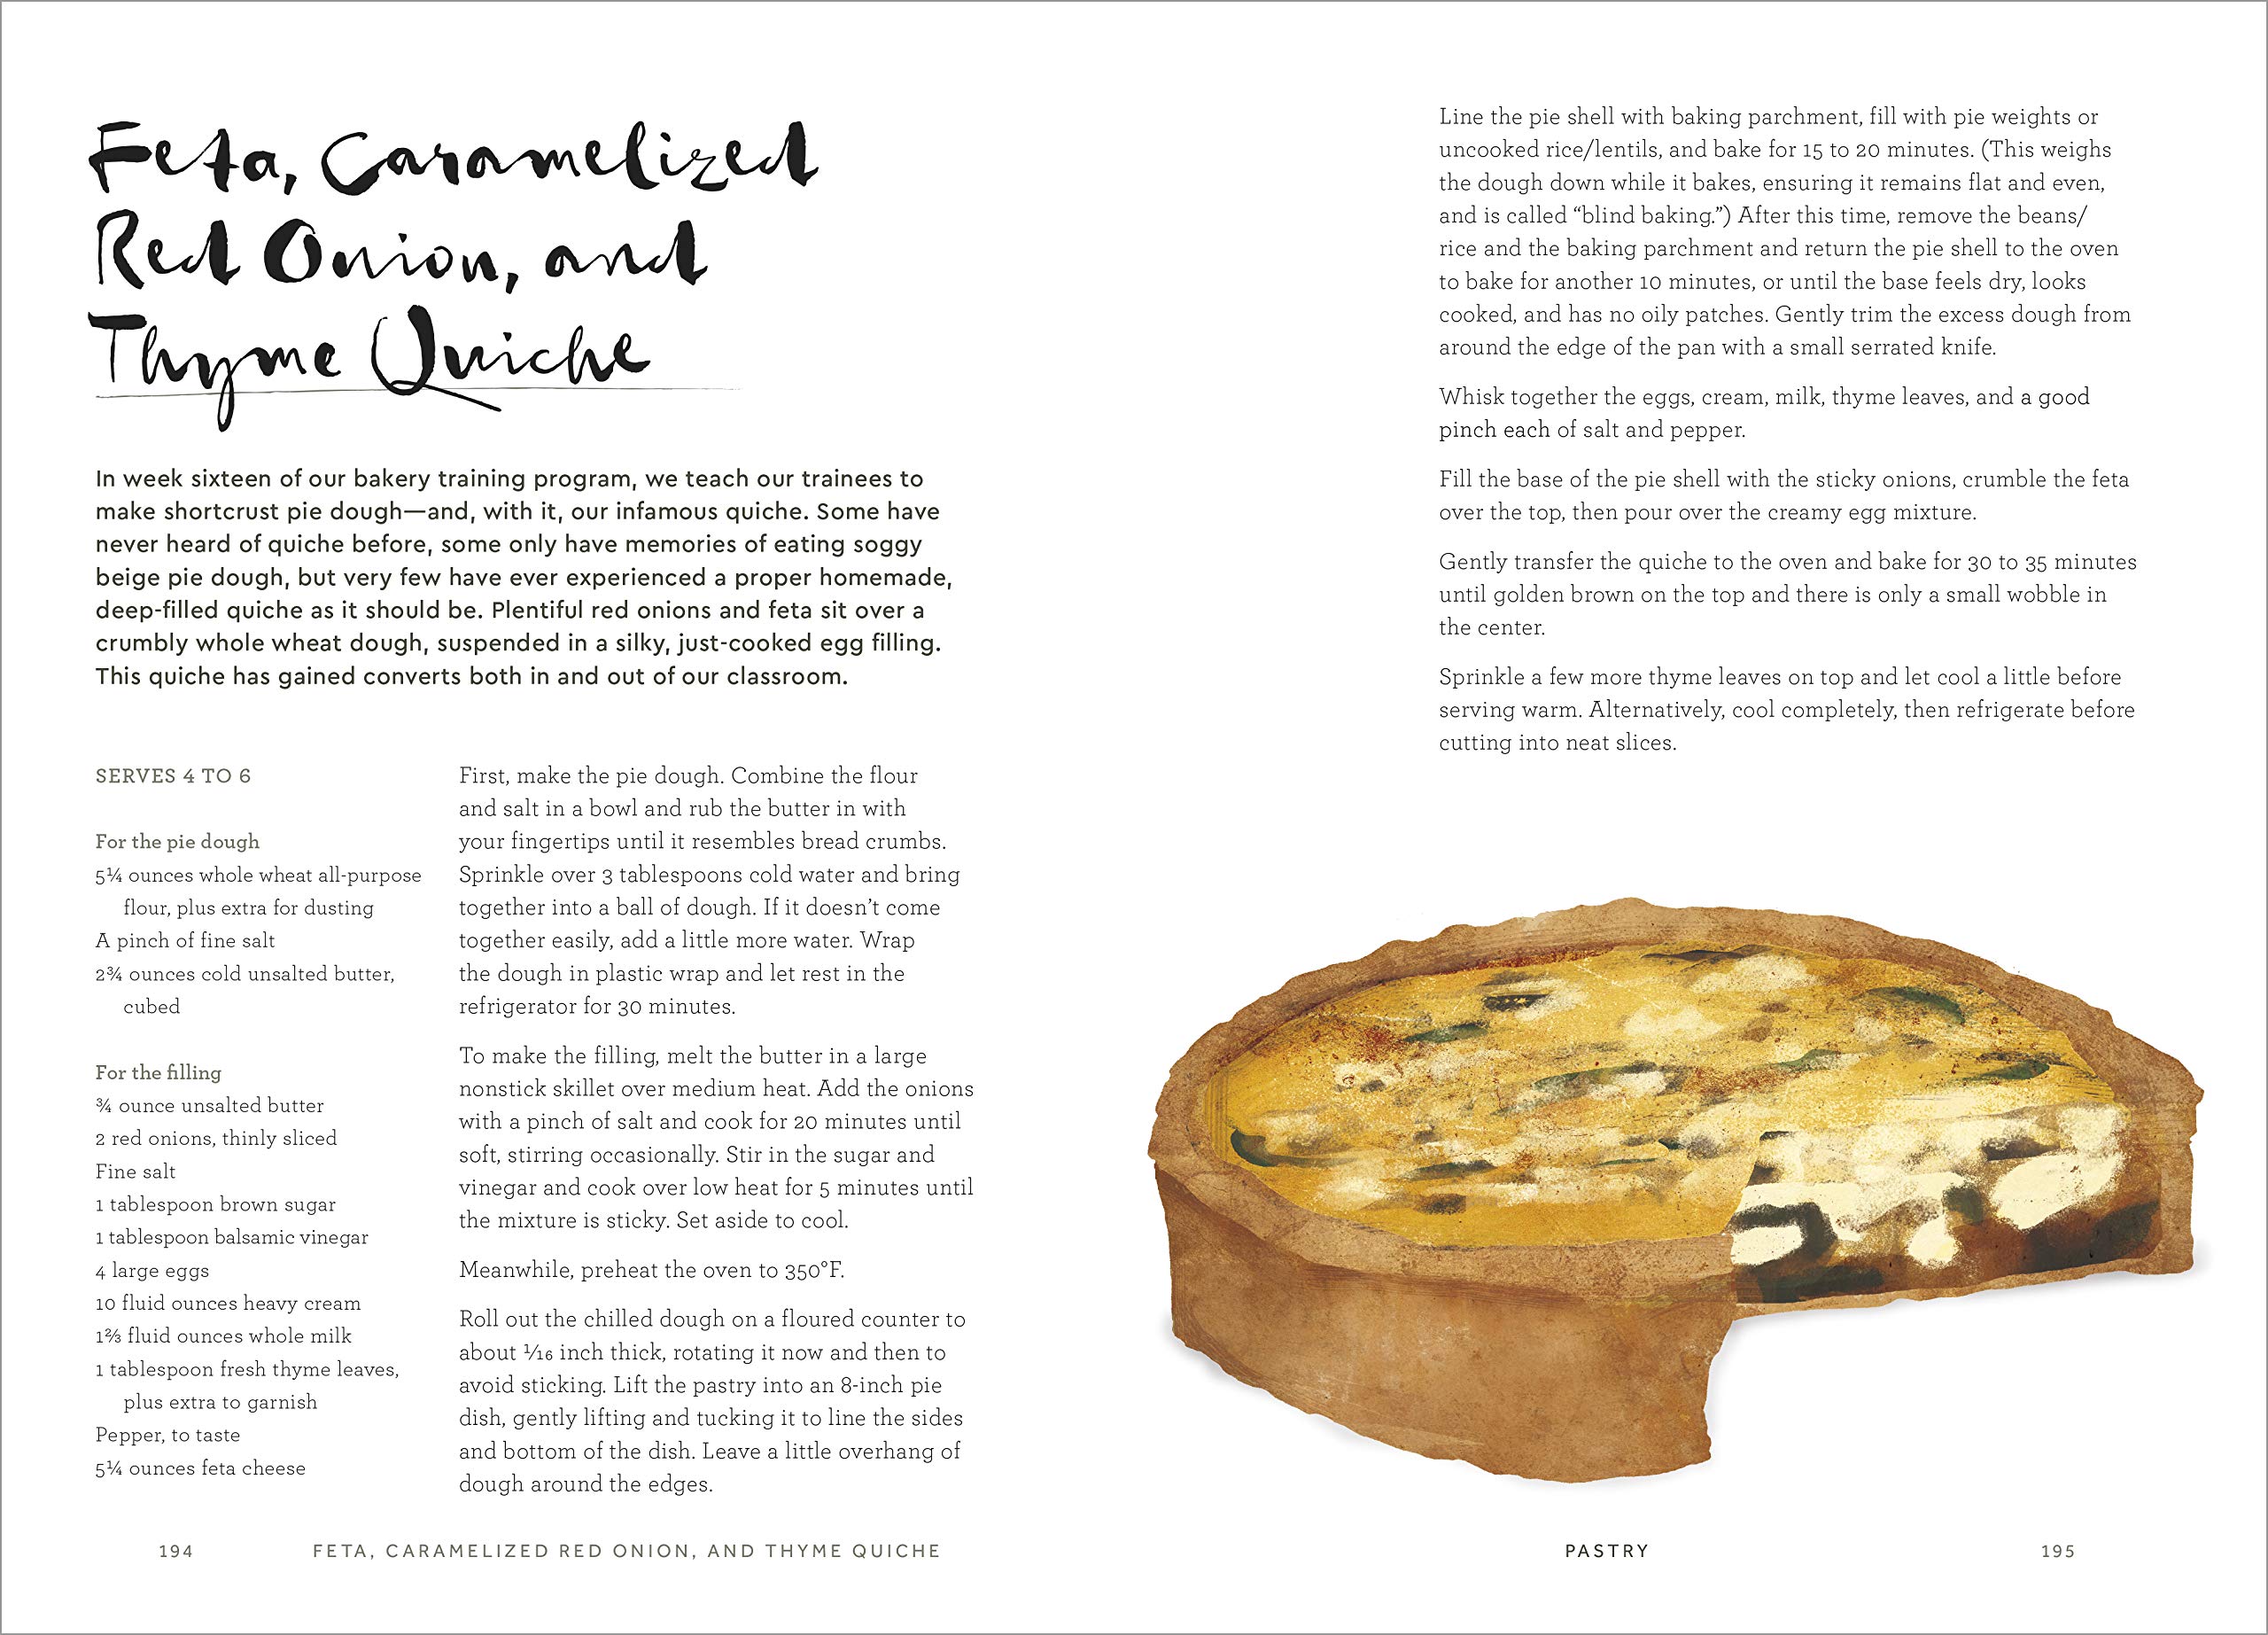 Feta, Caramelized
Red Onion, and
Thyme Quiche
In week sixteen of our bakery training program, we teach our trainees to
make shortcrust pie dough—and, with it, our infamous quiche. Some have
never heard of quiche before, some only have memories of eating soggy
beige pie dough, but very few have ever experienced a proper homemade,
deep-filled quiche as it should be. Plentiful red onions and feta sit over a
crumbly whole wheat dough, suspended in a silky, just-cooked egg filling.
This quiche has gained converts both in and out of our classroom.
SERVES 4 TO 6
For the pie dough
5¼ ounces whole wheat all-purpose
flour, plus extra for dusting
A pinch of fine salt
2¾ ounces cold unsalted butter,
cubed
For the filling
¾ ounce unsalted butter
2 red onions, thinly sliced
Fine salt
1 tablespoon brown sugar
1 tablespoon balsamic vinegar
4 large eggs
10 fluid ounces heavy cream
1⅔ fluid ounces whole milk
1 tablespoon fresh thyme leaves,
plus extra to garnish
Pepper, to taste
5¼ ounces feta cheese
First, make the pie dough. Combine the flour
and salt in a bowl and rub the butter in with
your fingertips until it resembles bread crumbs.
Sprinkle over 3 tablespoons cold water and bring
together into a ball of dough. If it doesn’t come
together easily, add a little more water. Wrap
the dough in plastic wrap and let rest in the
refrigerator for 30 minutes.
To make the filling, melt the butter in a large
nonstick skillet over medium heat. Add the onions
with a pinch of salt and cook for 20 minutes until
soft, stirring occasionally. Stir in the sugar and
vinegar and cook over low heat for 5 minutes until
the mixture is sticky. Set aside to cool.
Meanwhile, preheat the oven to 350°F.
Roll out the chilled dough on a floured counter to
about 1/16 inch thick, rotating it now and then to
avoid sticking. Lift the pastry into an 8-inch pie
dish, gently lifting and tucking it to line the sides
and bottom of the dish. Leave a little overhang of
dough around the edges.
194 FETA, CARAMELIZED RED ONION, AND THYME QUICHE
Line the pie shell with baking parchment, fill with pie weights or
uncooked rice/lentils, and bake for 15 to 20 minutes. (This weighs
the dough down while it bakes, ensuring it remains flat and even,
and is called “blind baking.”) After this time, remove the beans/
rice and the baking parchment and return the pie shell to the oven
to bake for another 10 minutes, or until the base feels dry, looks
cooked, and has no oily patches. Gently trim the excess dough from
around the edge of the pan with a small serrated knife.
Whisk together the eggs, cream, milk, thyme leaves, and a good
pinch each of salt and pepper.
Fill the base of the pie shell with the sticky onions, crumble the feta
over the top, then pour over the creamy egg mixture.
Gently transfer the quiche to the oven and bake for 30 to 35 minutes
until golden brown on the top and there is only a small wobble in
the center.
Sprinkle a few more thyme leaves on top and let cool a little before
serving warm. Alternatively, cool completely, then refrigerate before
cutting into neat slices.
PASTRY 195